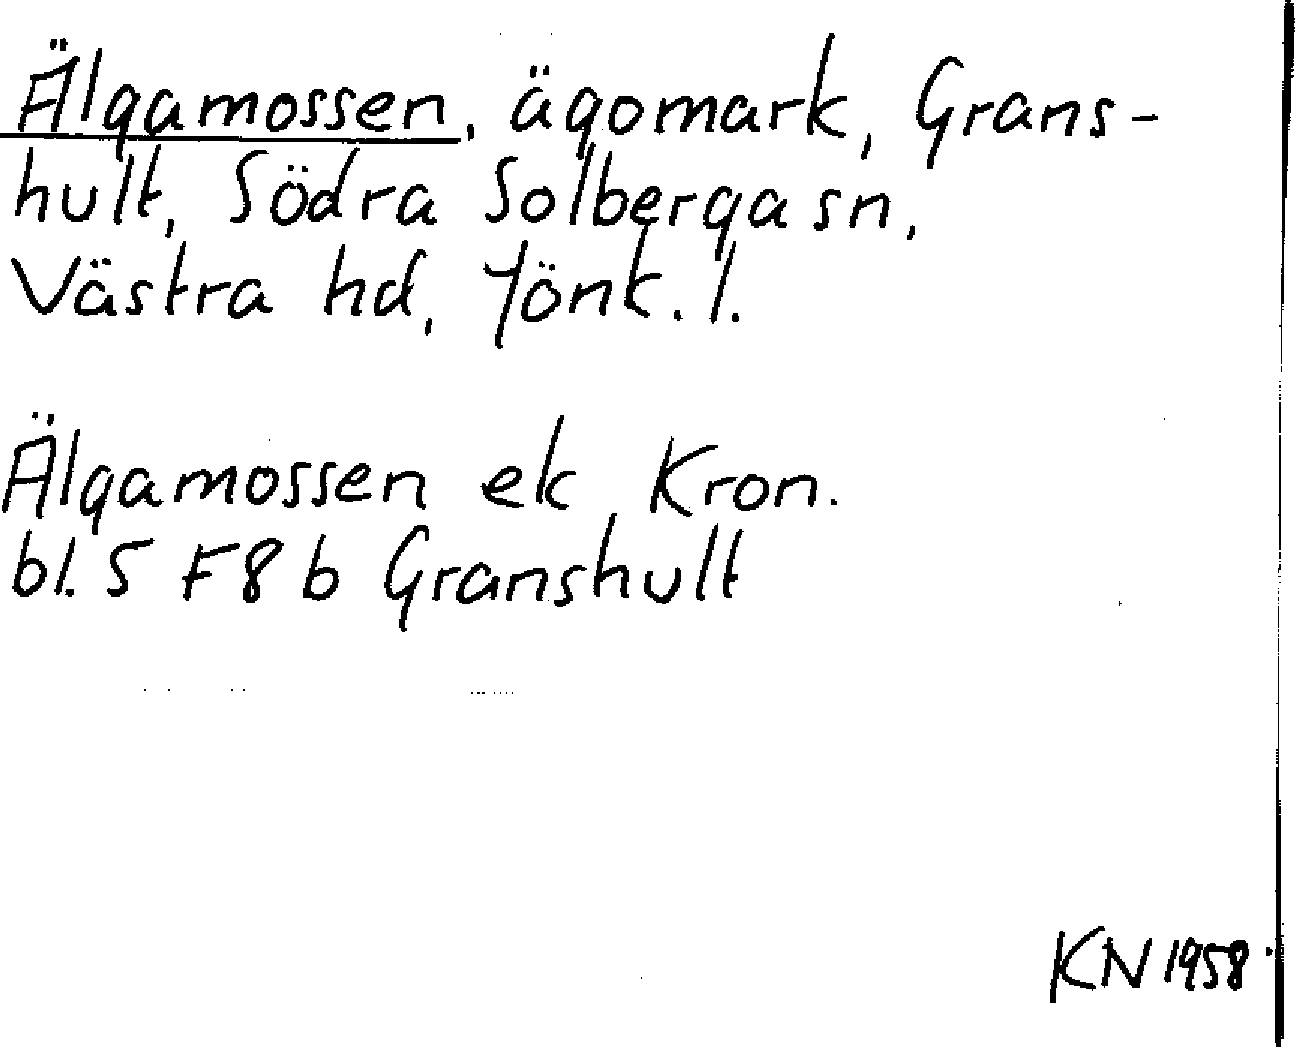 Älgamossen, ägomark, Grans-
hult, Södra Solberga sn,
Västra hd, Jönk. l.
Älgamossen ek Kron.
bl. 5 F8 b Granshult
KN 1958